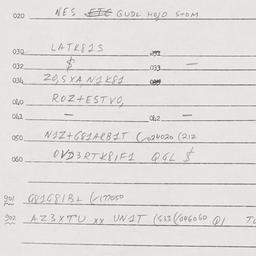 020 NES ETE GUDL HOJO STOM
030 LATK81S 032
032 $ 033 —
034 20,5XA,N1K81 035
040 ROZ+ESTVO,
041 — 042 —
050 N1Z+G81ARB1T (124020 (212
060 OVD3RTK8IF1 QGL $
901 G81G8IBL (177050
902 AZ3XTU XX UN1T (533(046060 Q1